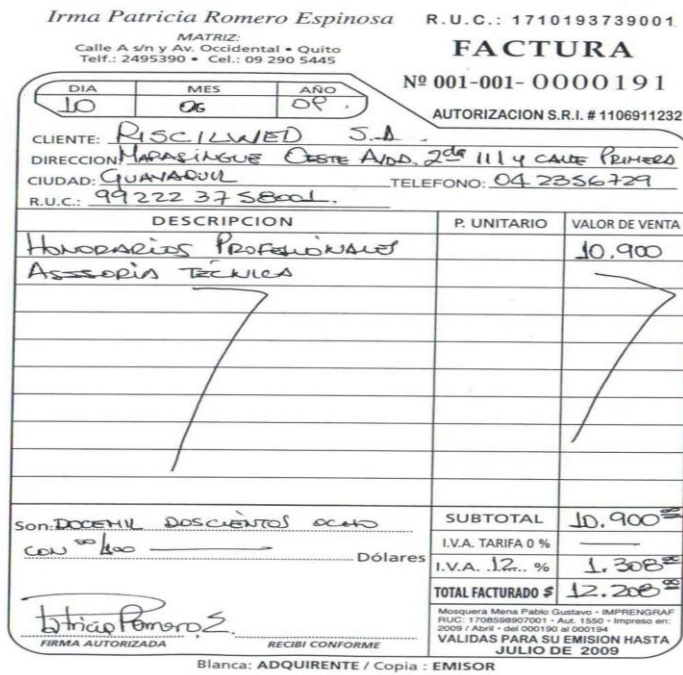 Irma Patricia Romero Espinosa
R.U.C.: 1710193739001
MATRIZ:
Calle A s/n y Av. Occidental • Quito
Telf.: 2495390 • Cel.: 09 290 5445
FACTURA
Nº 001-001-0000191
AUTORIZACION S.R.I. # 1106911232
DIA MES AÑO
10 06 09.
CLIENTE: RISCILWED S.A.
DIRECCION MAPASINGUE OESTE AVDA. 2da 111 y CALLE PRIMERA
CIUDAD: GUAYAQUIL TELEFONO: 04 2356729
R.U.C.: 992223758001.
DESCRIPCION P. UNITARIO VALOR DE VENTA
HONORARIOS PROFESIONALES 10.900
ASESORIA TECNICA
Son: DOCEMIL DOSCIENTOS OCHO
CON 00/100 Dólares
SUBTOTAL 10.900 00
I.V.A. TARIFA 0 % —
I.V.A. 12 % 1.308 00
TOTAL FACTURADO $ 12.208 00
Patricia Romero E.
FIRMA AUTORIZADA RECIBI CONFORME
Mosquera Mena Pablo Gustavo - IMPRENGRAF
RUC: 1708598907001 - Aut. 1550 - Impreso en:
2009 / Abril - del 000190 al 000194
VALIDAS PARA SU EMISION HASTA
JULIO DE 2009
Blanca: ADQUIRENTE / Copia : EMISOR